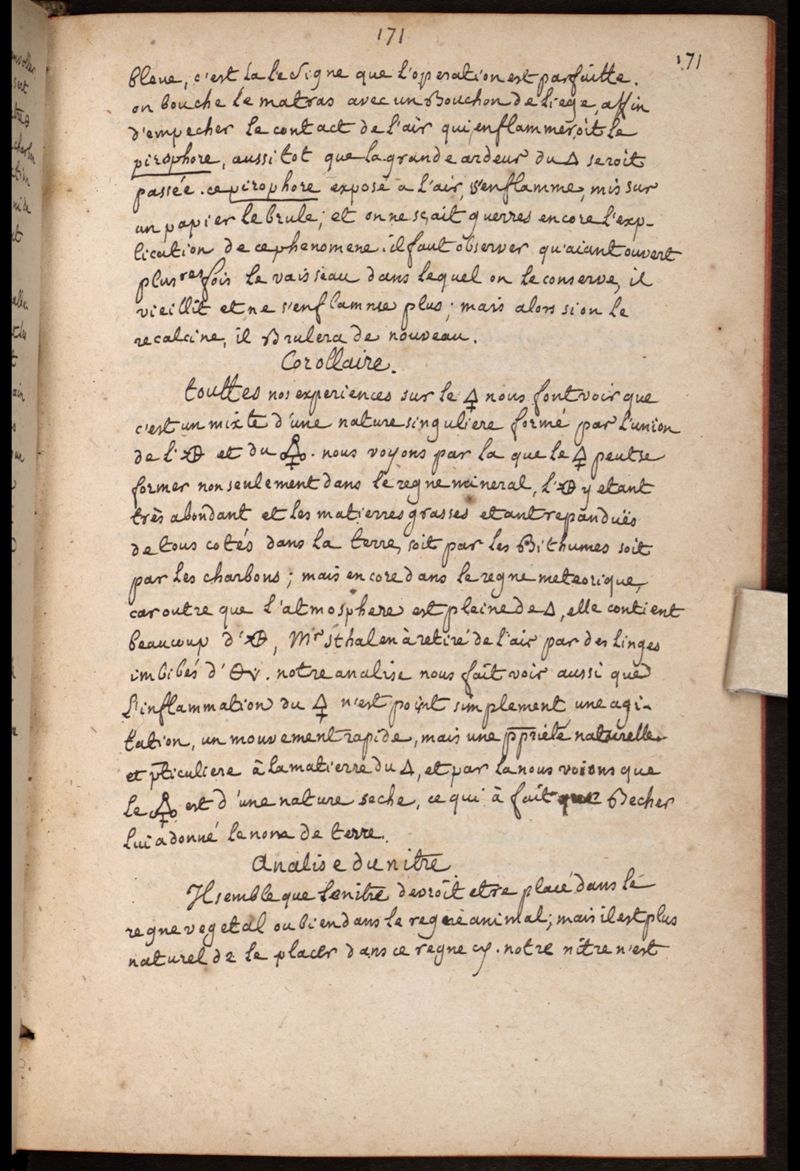 171
171
bleue, c'est la le signe que l'operation est parfaitte.
on bouche le matras avec un Bouchon de liege, affin
d'empecher le contact de l'air qui enflammeroit le
pirophore, aussitot que la grande ardeur du 🜂 seroit
passée. ce pirophore exposé a l'air, s'enflamme, mis sur
un papier le brule; et on ne sçait guerres encore l'exp-
lication de ce phenomene. il faut observer qu'aiant ouvert
plusres fois le vaisseau dans lequel on le conserve, il
vieillit et ne s'enflamme plus; mais alors si on le
recalcine, il Brulera de nouveau.
Corollaire.
touttes nos experiences sur le 🜍 nous font voir que
c'est un mixte d'une nature singuliere formé par l'union
de l' et du . nous voyons par la que le 🜍 peut se
former non seulement dans le regne mineral, l' y etant
très abondant et les matierres grasses etant repanduës
de tous cotés dans la terre, soit par les Bithumes soit
par les charbons; mais encore dans le regne meteorique,
car outre que l'atmosphere est pleine de 🜂, elle contient
beaucoup d', Mr Sthal en à retiré de l'air par des linges
imbibés d'. notre analise nous fait voir aussi que
l'inflammation du 🜍 n'est point simplement une agi-
tation, un mouvement rapide, mais une ppriété naturelle
et pticuliere à la matierre du 🜂, et par la nous voions que
le est d'une nature seche, ce qui à fait que Becher
lui a donné le nom de terre.
Analise du nitre
Il semble que le nitre devroit etre placé dans le
regne vegetal ou bien dans le regne animal; mais il est plus
naturel de le placer dans ce regne cy. notre nitre n'est